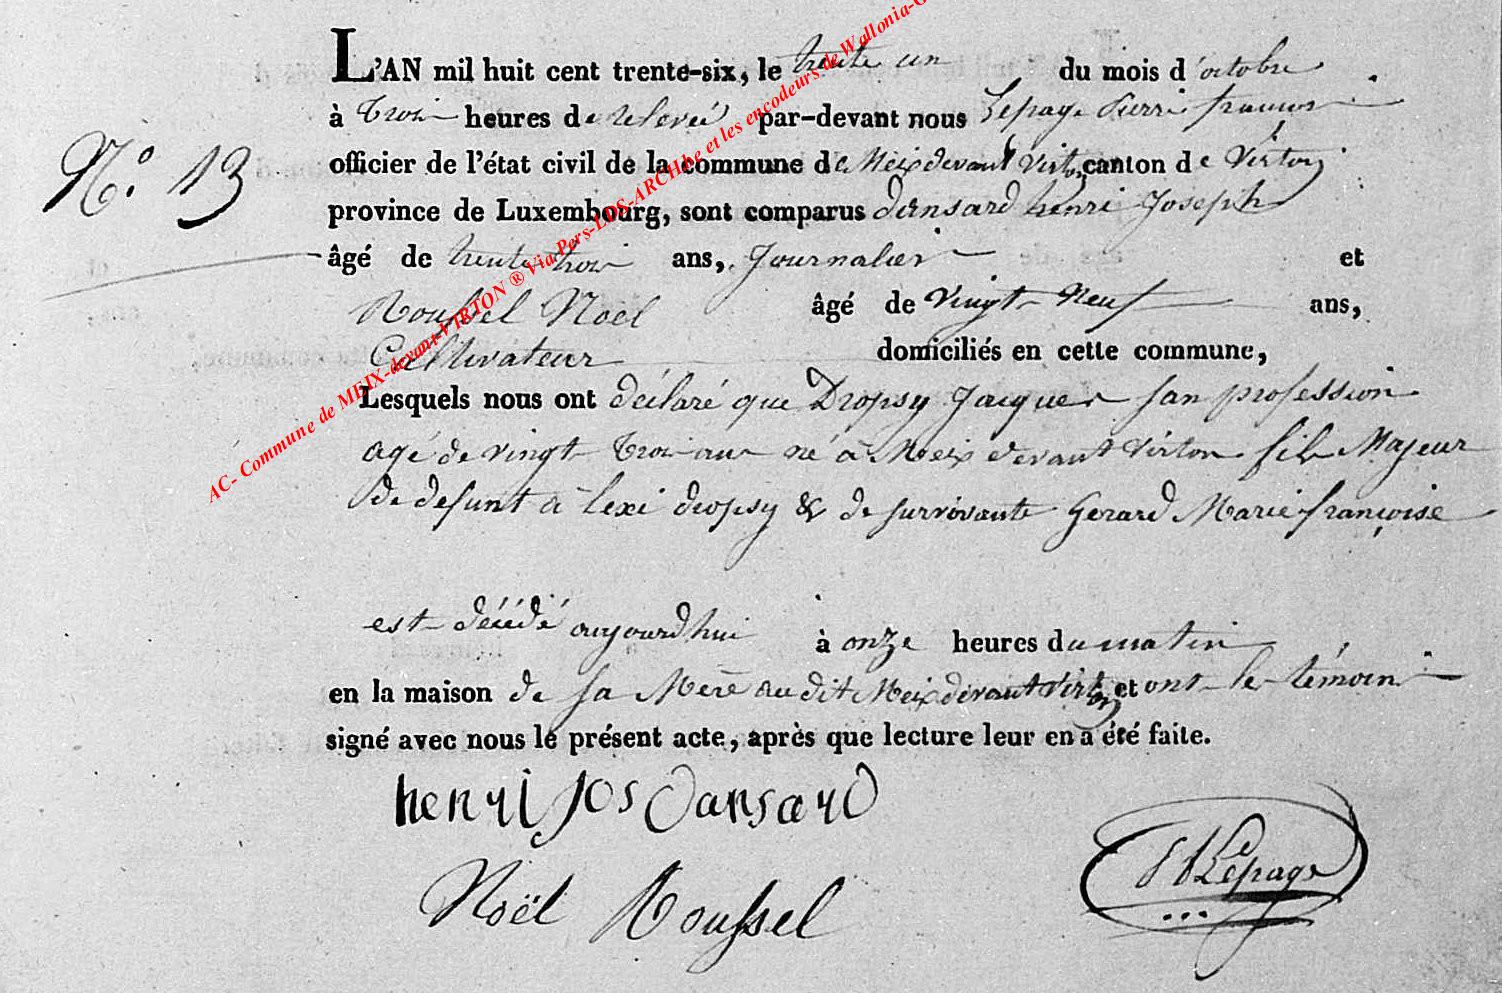 L'AN mil huit cent trente-six, le trente un du mois d'octobre
à trois heures de relevé par-devant nous Lepage Pierre françois
officier de l'état civil de la commune de Meix devant Virton canton de Virton
N.° 13
province de Luxembourg, sont comparus dansard henri Joseph
âgé de trente trois ans, Journalier et
Roussel Noël âgé de Vingt Neuf ans,
Cultivateur domiciliés en cette commune,
Lesquels nous ont déclaré que Dropsy Jacques san profession
agé de vingt trois ans né à Meix devant Virton fils Majeur
de defunt à lexi dropsy & de survivante Gerard Marie françoise
est décédé aujourdhui à onze heures du matin
en la maison de sa Mere au dit Meix devant Virton et ont les témoins
signé avec nous le présent acte, après que lecture leur en a été faite.
henri jos dansard
Noël Roussel
Lepage
AC- Commune de MEIX-devant-VIRTON ® Via Pers-LDS-ARCH.be et les encodeurs de Wallonia-G